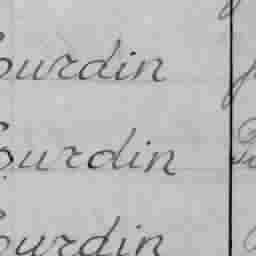 ourdin
ourdin
ourdin